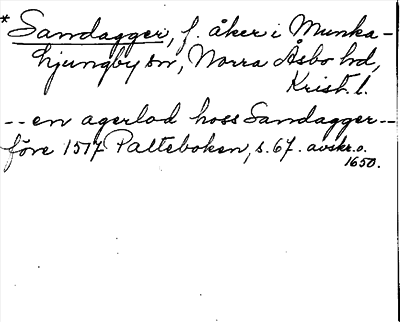 * Sandagger, f. åker i Munka-
Ljungby sn, Norra Åsbo hd,
Krist. l.
-- en agerlod hoss Sandagger--
före 1517 Palteboken, s. 67. avskr. o.
1650.